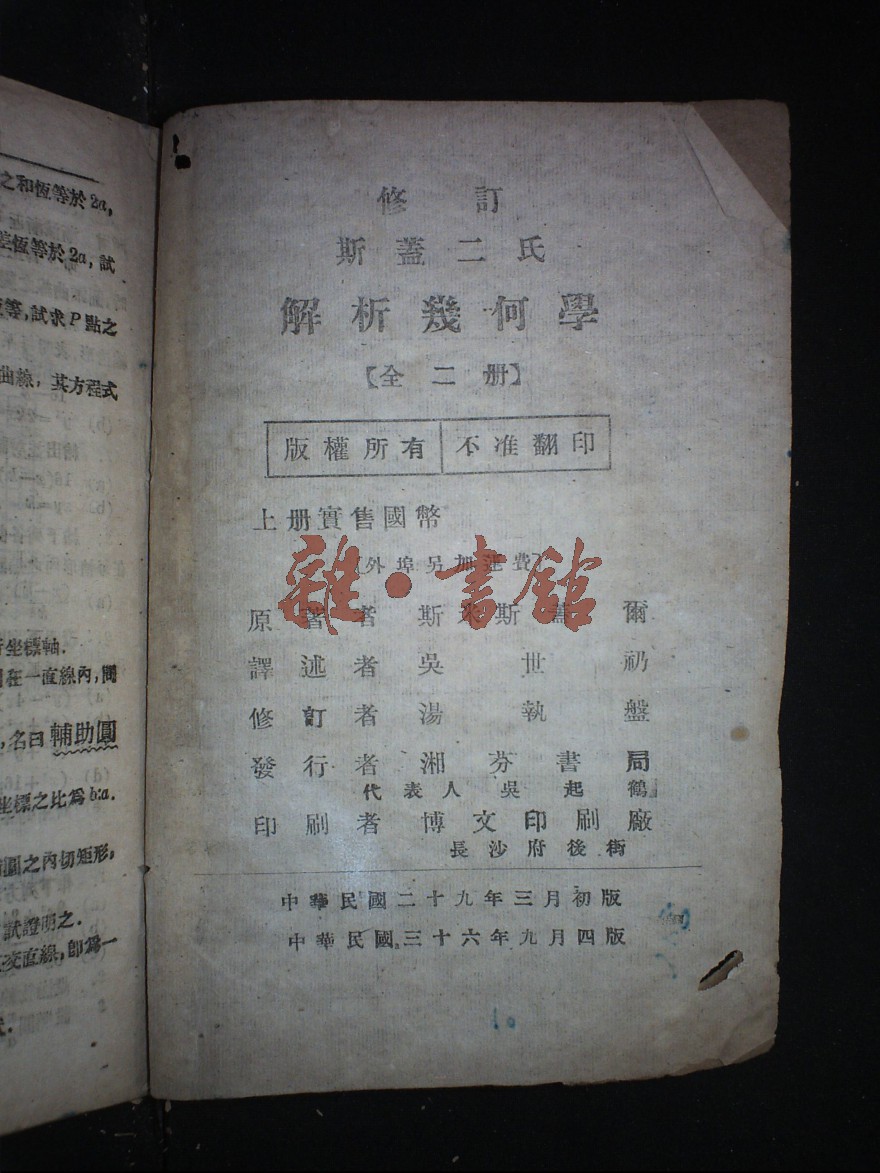 之和恆等於2a,
差恆等於2a, 試
等, 試求P點之
曲線, 其方程式
行坐標軸.
在一直線內, 問
名曰輔助圓
坐標之比為b:a.
圓之內切矩形,
試證明之.
交直線, 卽為一
修訂
斯蓋二氏
解析幾何學
【全二册】
版權所有 不准翻印
上册實售國幣
(外埠另加運費)
雜·書館
原著者斯米斯蓋爾
譯述者吳世礽
修訂者湯執盤
發行者湘芬書局
代表人吳起鶴
印刷者博文印刷廠
長沙府後街
中華民國二十九年三月初版
中華民國三十六年九月四版